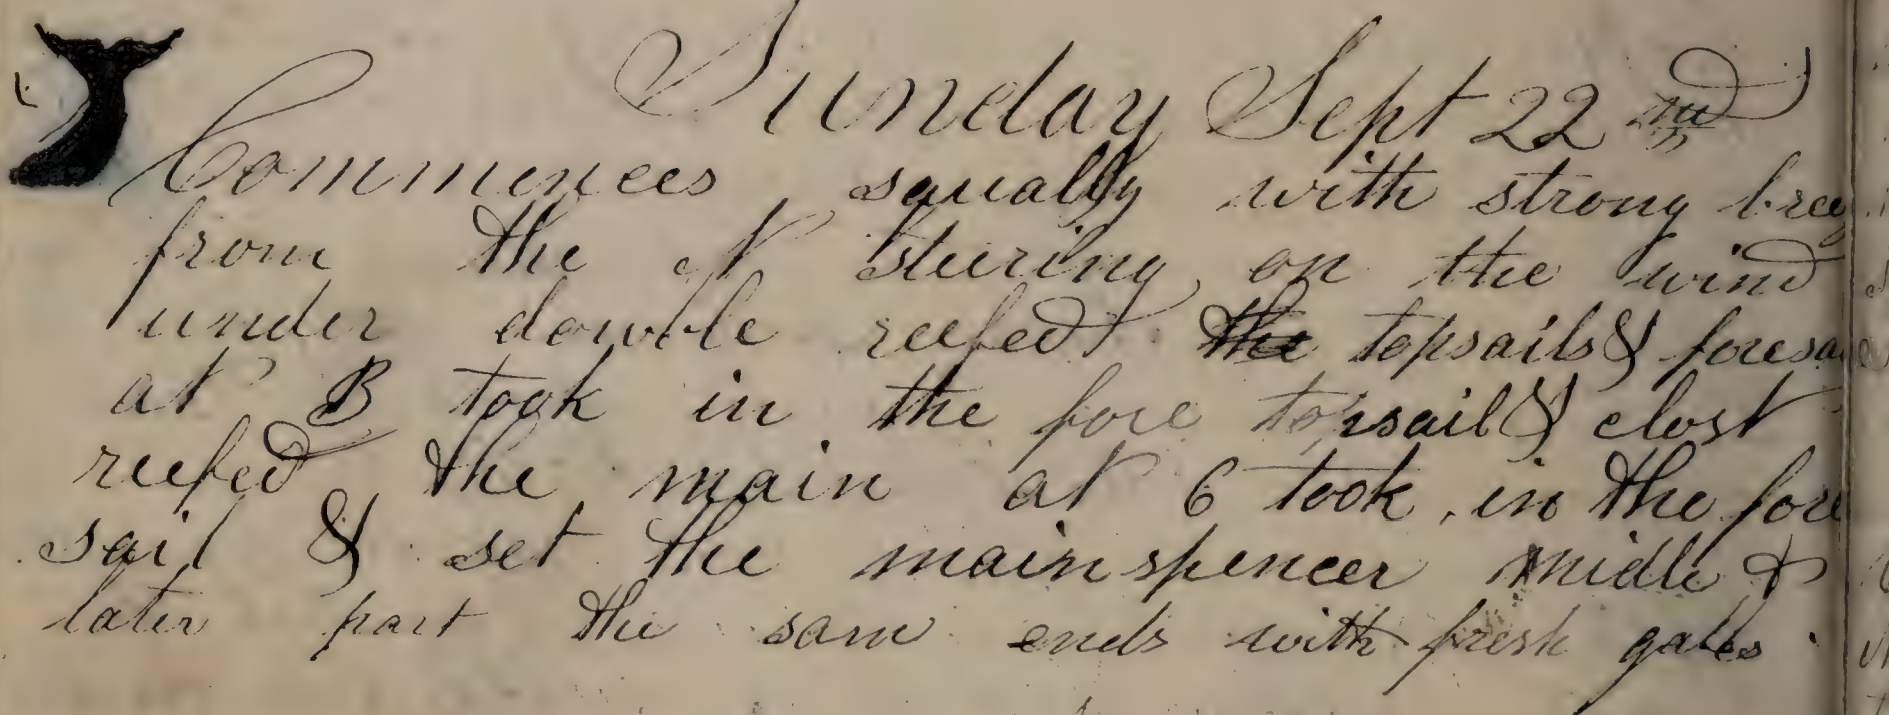 Sunday Sept 22nd
Commences squally with strong breez
from the N steering on the wind
under dowble reefed the topsails & foresa
at B took in the fore topsail & clost
reefed the main at 6 took in the fore
sail & set the main spencer midle &
later part the sam ends with fresh gales